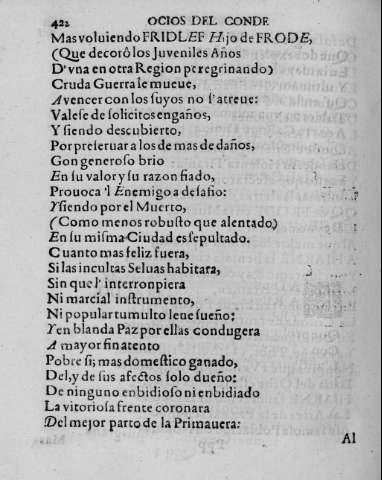 422 OCIOS DEL CONDE
Mas voluiendo FRIDLEF Hijo de FRODE,
(Que decorô los Juveniles Años
D'vna en otra Region peregrinando)
Cruda Guerra le mueue,
A vencer con los suyos no s'atreue:
Valese de solicitos engaños,
Y siendo descubierto,
Por preseruar a los de mas de daños,
Gon generoso brio
En su valor y su razon fiado,
Prouoca 'l Enemigo a desafio:
Y siendo por el Muerto,
(Como menos robusto que alentado)
En su misma Ciudad es sepultado.
Cuanto mas feliz fuera,
Si las incultas Seluas habitara,
Sin que l' interronpiera
Ni marcial instrumento,
Ni popular tumulto leue sueño:
Y en blanda Paz por ellas condugera
A mayor fin atento
Pobre si; mas domestico ganado,
Del, y de sus afectos solo dueño:
De ninguno enbidioso ni enbidiado
La vitoriosa frente coronara
Del mejor parto de la Primauera:
Al